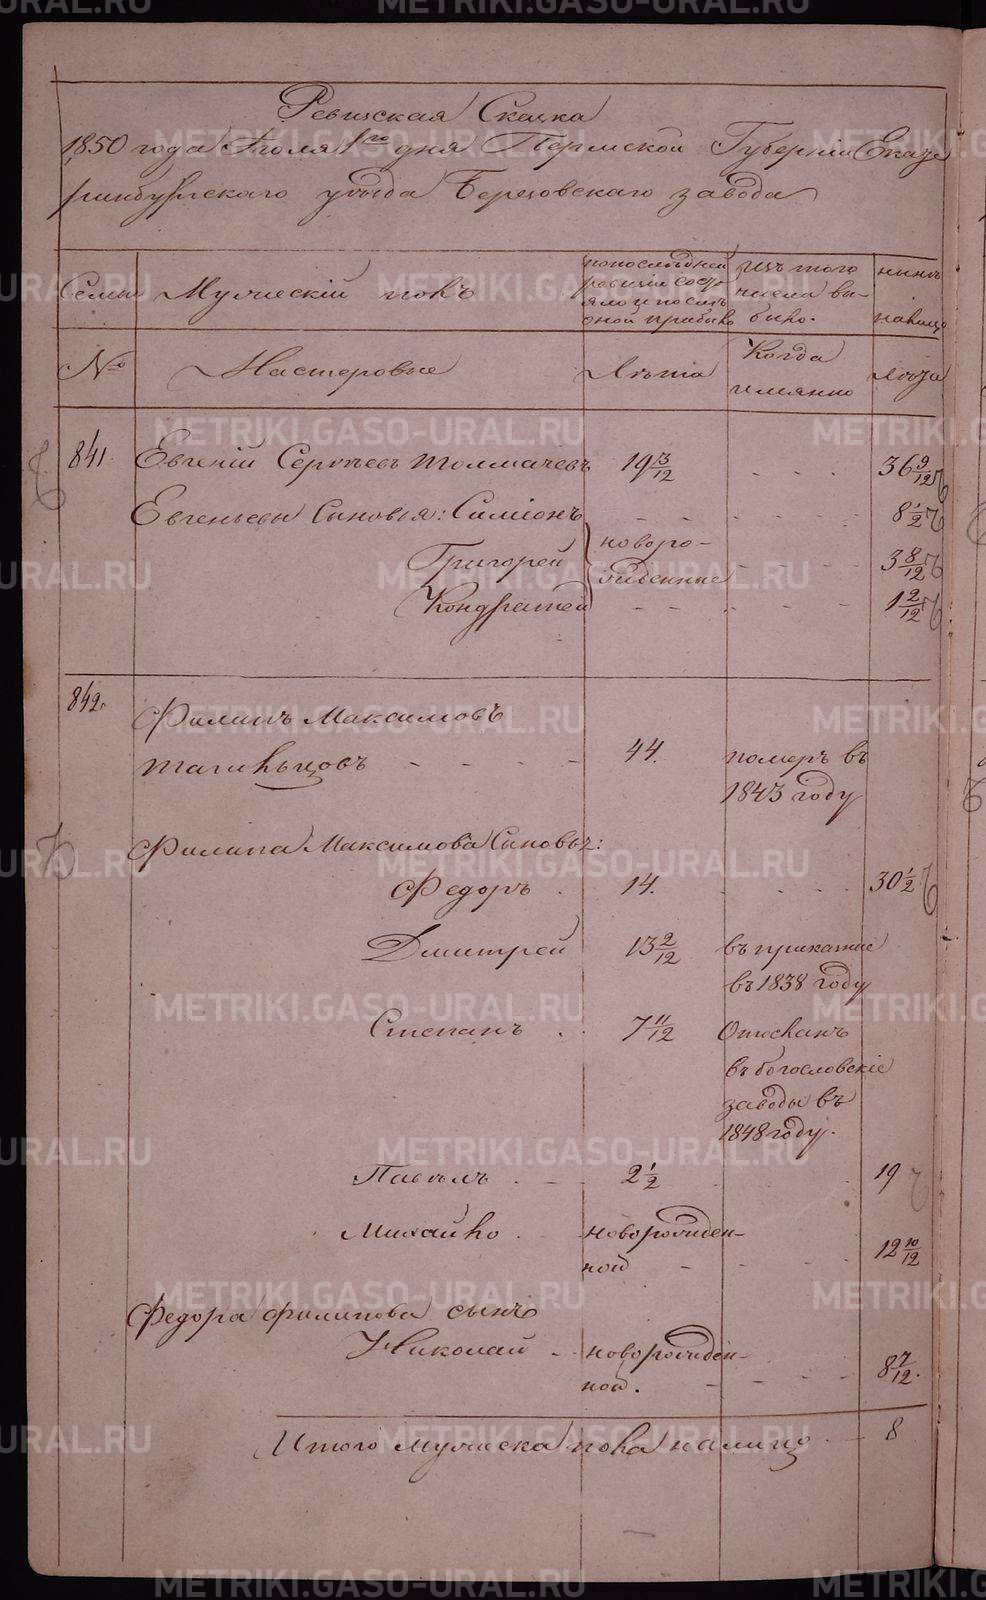 METRIKI.GASO-URAL.RU
Ревизская Сказка
1850 года Июля 1го дня Пермской Губернии Екате
ринбургскаго уѣзда Березовскаго завода
Семьи
Мужескій полъ
попослѣдней ревизіи состояло и послѣ оной прибыло
Изъ того числа выбыло.
нынѣ налицо
№
Мастеровые
Лѣта
Когда имянно
Лѣта
841. Евгеній Сергѣевъ Толмачевъ 19 3/12 36 9/12
Евгеньевы Сыновья: Симіонъ 8 1/2
Григорей новоро- 3 8/12
Кондратей жденные 1 2/12
842.
Филипъ Максимовъ
Тагильцовъ 44. померъ въ
1843 году
Филипа Максимова Сыновья:
Федоръ 14. 30 1/2
Дмитрей 13 2/12 въ
въ 1838 году
Степанъ 7 11/12 Отосланъ
въ богословскіе
заводы въ
1848 году.
Павелъ 2 1/2 19
Михайло новорожден-
ной 12 10/12
Федора Филипова сынъ
Николай новорожден-
ной. 8 7/12.
Итого мужеска пола налицо 8